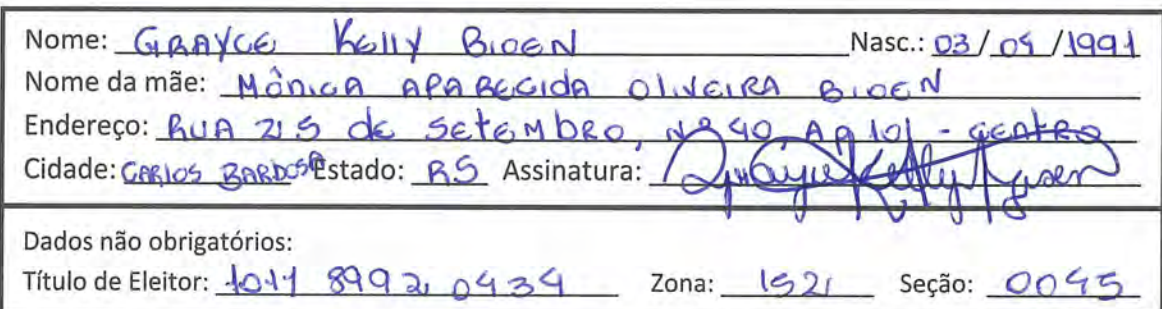 Nome: GRAYCE KELLY BIOEN Nasc.: 03/04/1991
Nome da mãe: MÔNICA APARECIDA OLIVEIRA BIOEN
Endereço: RUA 25 de SETEMBRO, Nº 40, AP 101 - CENTRO
Cidade: CARLOS BARBOSA Estado: RS Assinatura: Grayce Kelly
Dados não obrigatórios:
Título de Eleitor: 1011 8992 0434 Zona: 152 Seção: 0045